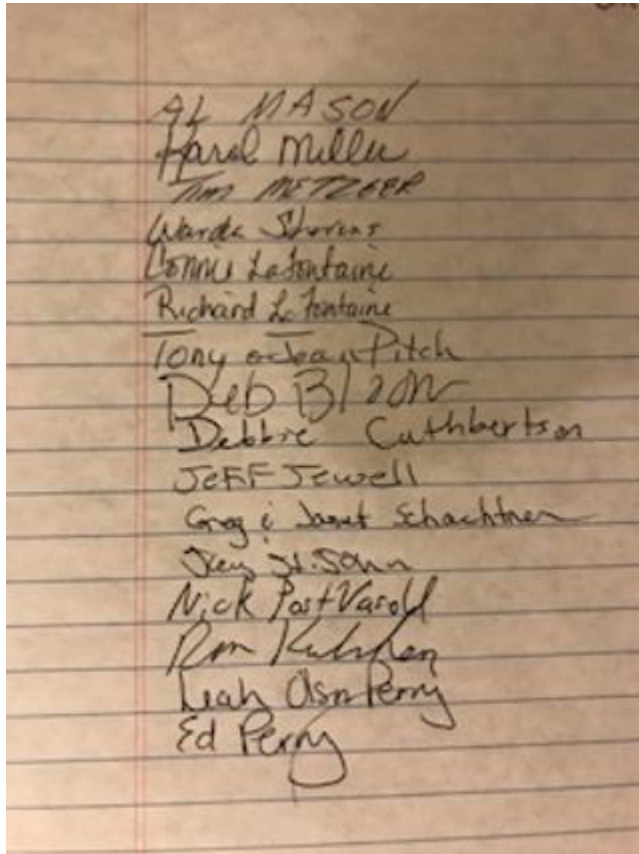 AL MASON
Karol Miller
TIM METZGER
Wanda Stevens
Connie LaFontaine
Richard LaFontaine
Tony & Joan Pitch
Deb
Debbie Cuthbertson
JEFF Jewell
Greg & Janet Schachtner
St. John
Nick
Ron
Leah Perry
Ed Perry